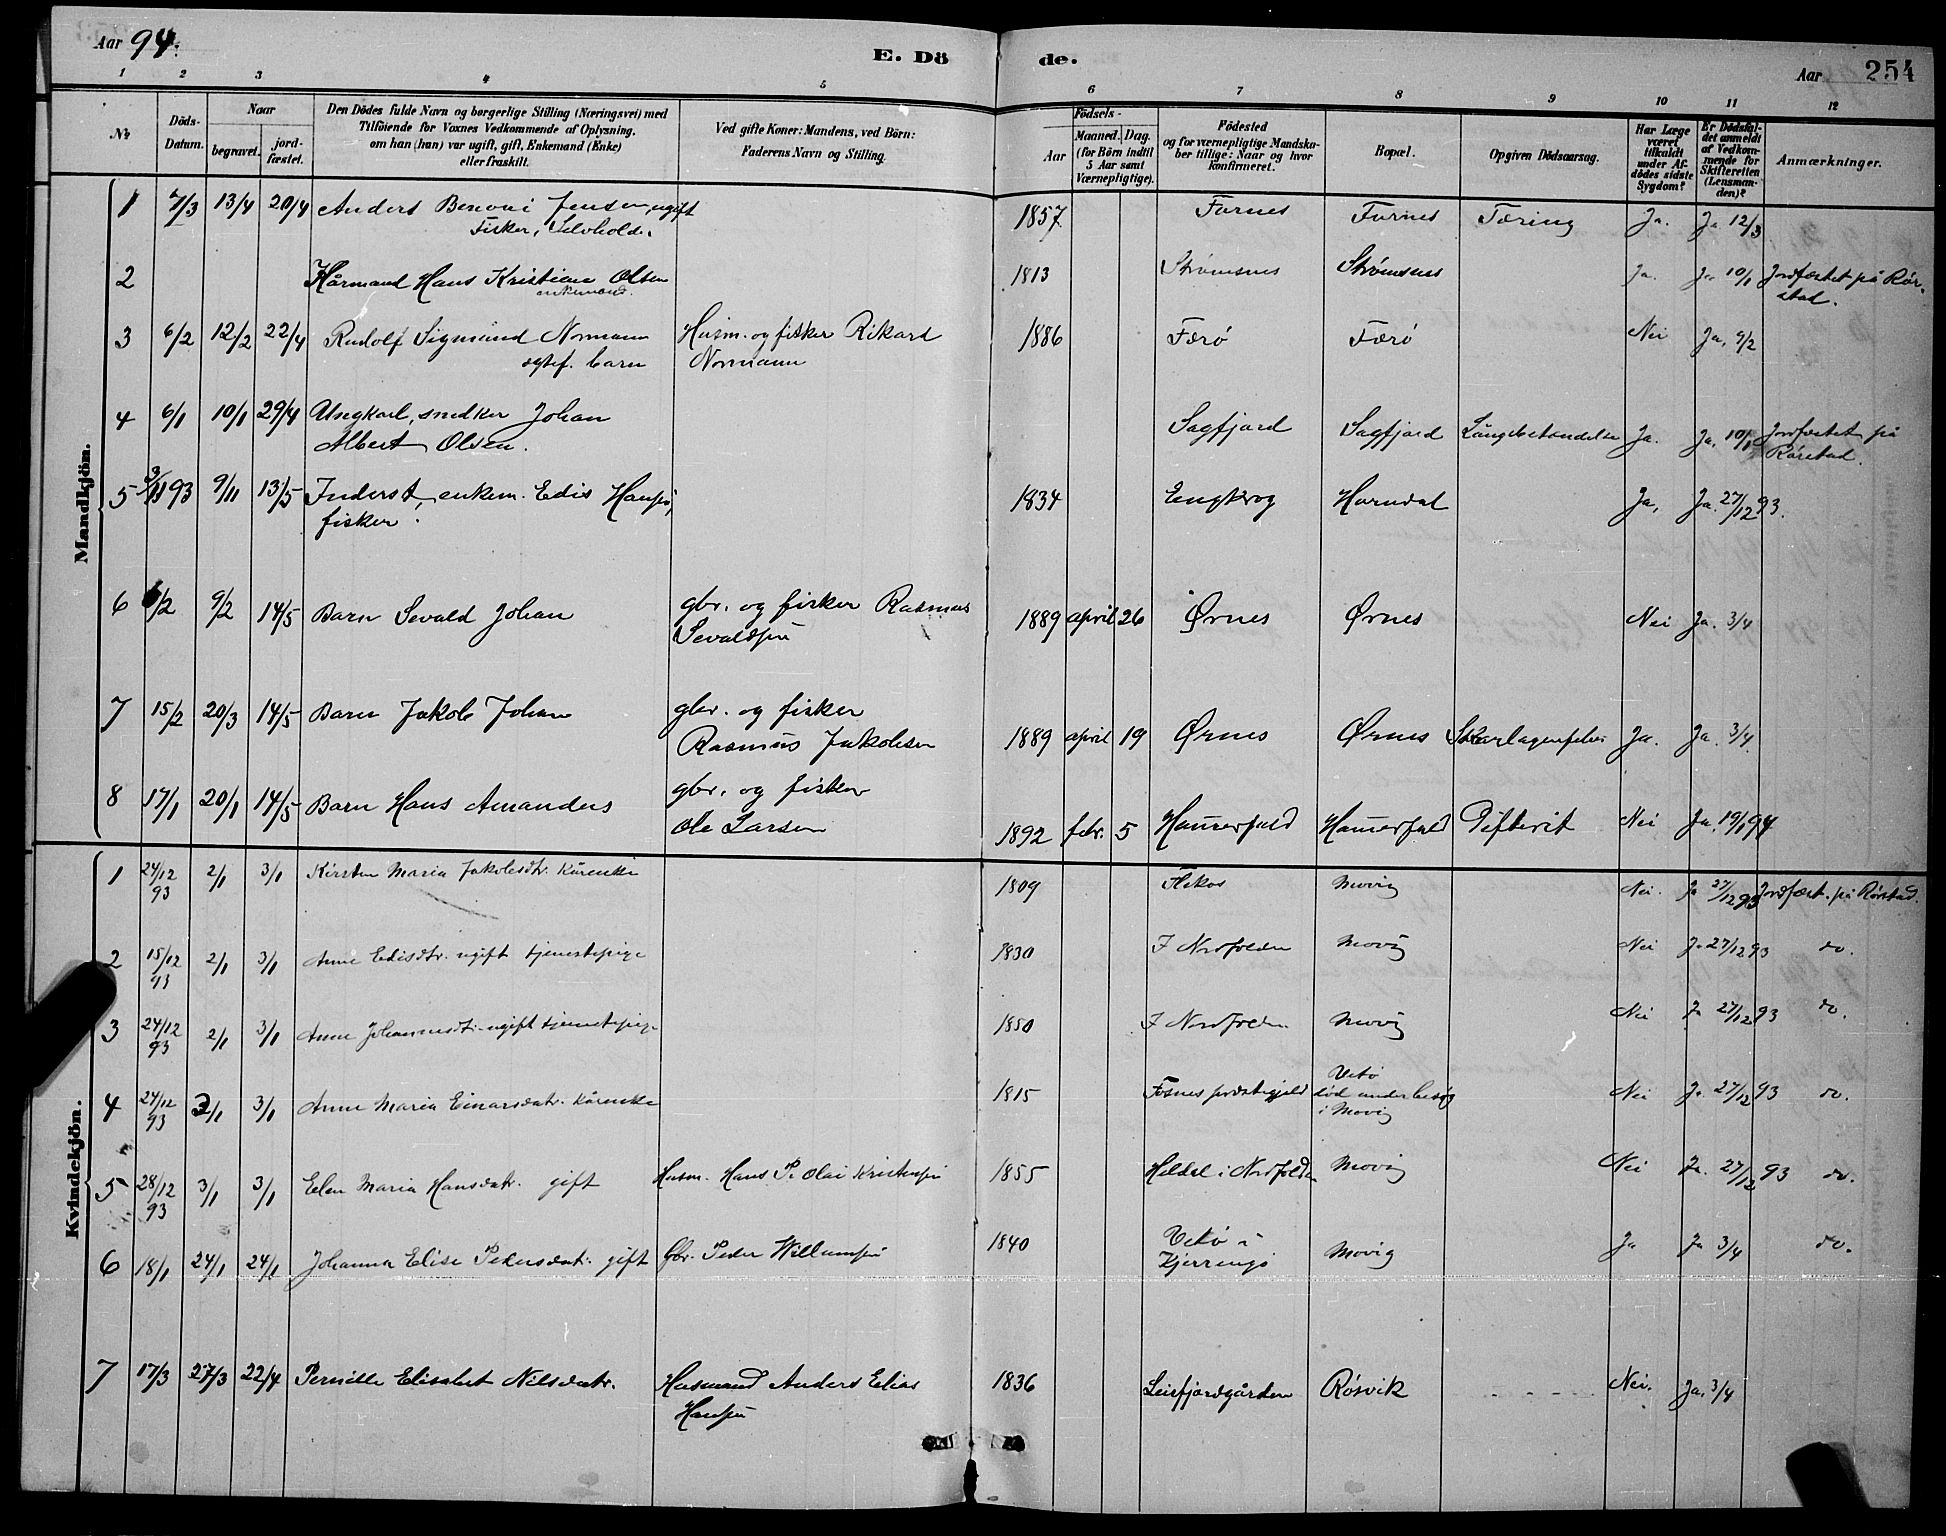 Aar 94.
E. Dö
de.
Aar 254
1 2 3 4 5 6 7 8 9 10 11 12
No
Döds-Datum.
Naar
begravet.
jord-fæstet.
Den Dödes fulde Navn og borgerlige Stilling (Næringsvei) med
Tilföiende for Voxnes Vedkommende af Oplysning,
om han (hun) var ugift, gift, Enkemand (Enke)
eller fraskilt.
Ved gifte Koner: Mandens, ved Börn:
Faderens Navn og Stilling.
Födsels-
Aar
Maaned.
Dag.
(for Börn indtil
5 Aar samt
Værnepligtige).
Födested
og for værnepligtige Mandska-
ber tillige: Naar og hvor
konfirmeret.
Bopæl.
Opgiven Dödsaarsag.
Har Læge
været
tilkaldt
under Af-
dödes sidste
Sygdom?
Er Dödsfal-
det anmeldt
af Vedkom-
mende for
Skifteretten
(Lensman-
den)?
Anmærkninger.
Mandkjön.
1 7/3 13/4 20/4 Anders Benoni Jensen, ugift 1857 Furnes Furnes Tæring Ja. Ja 12/3
Fisker, Selvholden
2 Kårmand Hans Kristian Olsen 1813 Strømsnes Strømsnes Ja. Ja 10/1 Jordfæstet på Rør-
enkemand. stad.
3 6/2 12/2 22/4 Rudolf Sigmund Normann Husm. og fisker Rikard 1886 Færø Færø Nei Ja, 9/2
ægtef. barn Normann
4 6/1 10/1 29/4 Ungkarl, snedker Johan Sagfjord Sagfjord Lungebetændelse Ja. Ja. 10/1 Jordfæstet på
Albert Olsen. Rørstad.
5 3/11 93 9/11 13/5 Inderst, enkem. Edis Hanssen, 1834 Engkrog Horndal Ja, Ja. 27/12 93.
fisker.
6 6/2 9/2 14/5 Barn Sevald Johan gbr. og fisker Rasmus 1889 april 26 Ørnes Ørnes Nei Ja. 3/4
Sevaldssen
7 15/2 20/3 14/5 Barn Jakob Johan gbr. og fisker
Rasmus Jakobsen 1889 april 19 Ørnes Ørnes Skarlagensfeber Ja. Ja. 3/4.
8 17/1 20/1 14/5 Barn Hans Amandus gbr. og fisker
Ole Larsen 1892 febr. 5 Hammerfald Hammerfald Difterit Nei Ja. 19/1 94
Kvindekjön.
1 24/12 93 2/1 3/1 Kirsten Maria Jakobsdtr. kårenke 1809 Flekos Movig Nei. Ja 27/12 93 Jordfæst. på Rørstad.
2 15/12 93 2/1 3/1 Anne Edisdtr. ugift tjenestepige 1830 I Nordfolden Movig Nei Ja 27/12 93 do.
3 24/12 93 2/1 3/1 Anne Johannesdtr. ugift tjenestepige 1850 I Nordfolden Movig Nei Ja 27/12 93 do.
4 24/12 93 2/1 3/1 Anne Maria Einarsdatr. kårenke 1815 Fosnes præstegjeld død under besøg Nei Ja 27/12 93 do.
i Movig
5 28/12 93 3/1 3/1 Elen Maria Hansdatr. gift Husm. Hans P. Olai Kristensen 1855 Heldal i Nordfolden Movig Nei Ja. 27/12 93 do.
6 18/1 24/1 24/1 Johanna Elise Pedersdatr. gift Gbr. Peder Willumsen 1840 i Kjerringø Movig Ja Ja 3/4 do.
7 17/3 27/3 22/4 Pernille Elisabet Nilsdatr. Husmand Anders Elias 1836 Leirfjordgården Røsvik Nei. Ja. 3/4
Hanssen